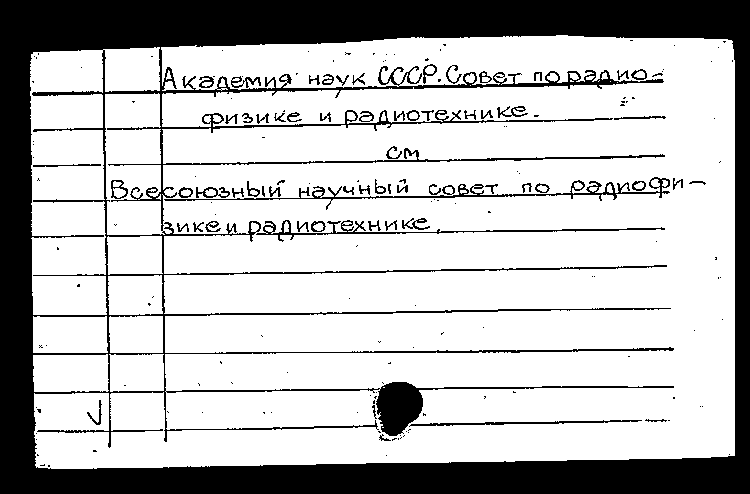 Академия наук СССР. Совет по радио-
физике и радиотехнике.
см
Всесоюзный научный совет по радиофи-
зике и радиотехнике.